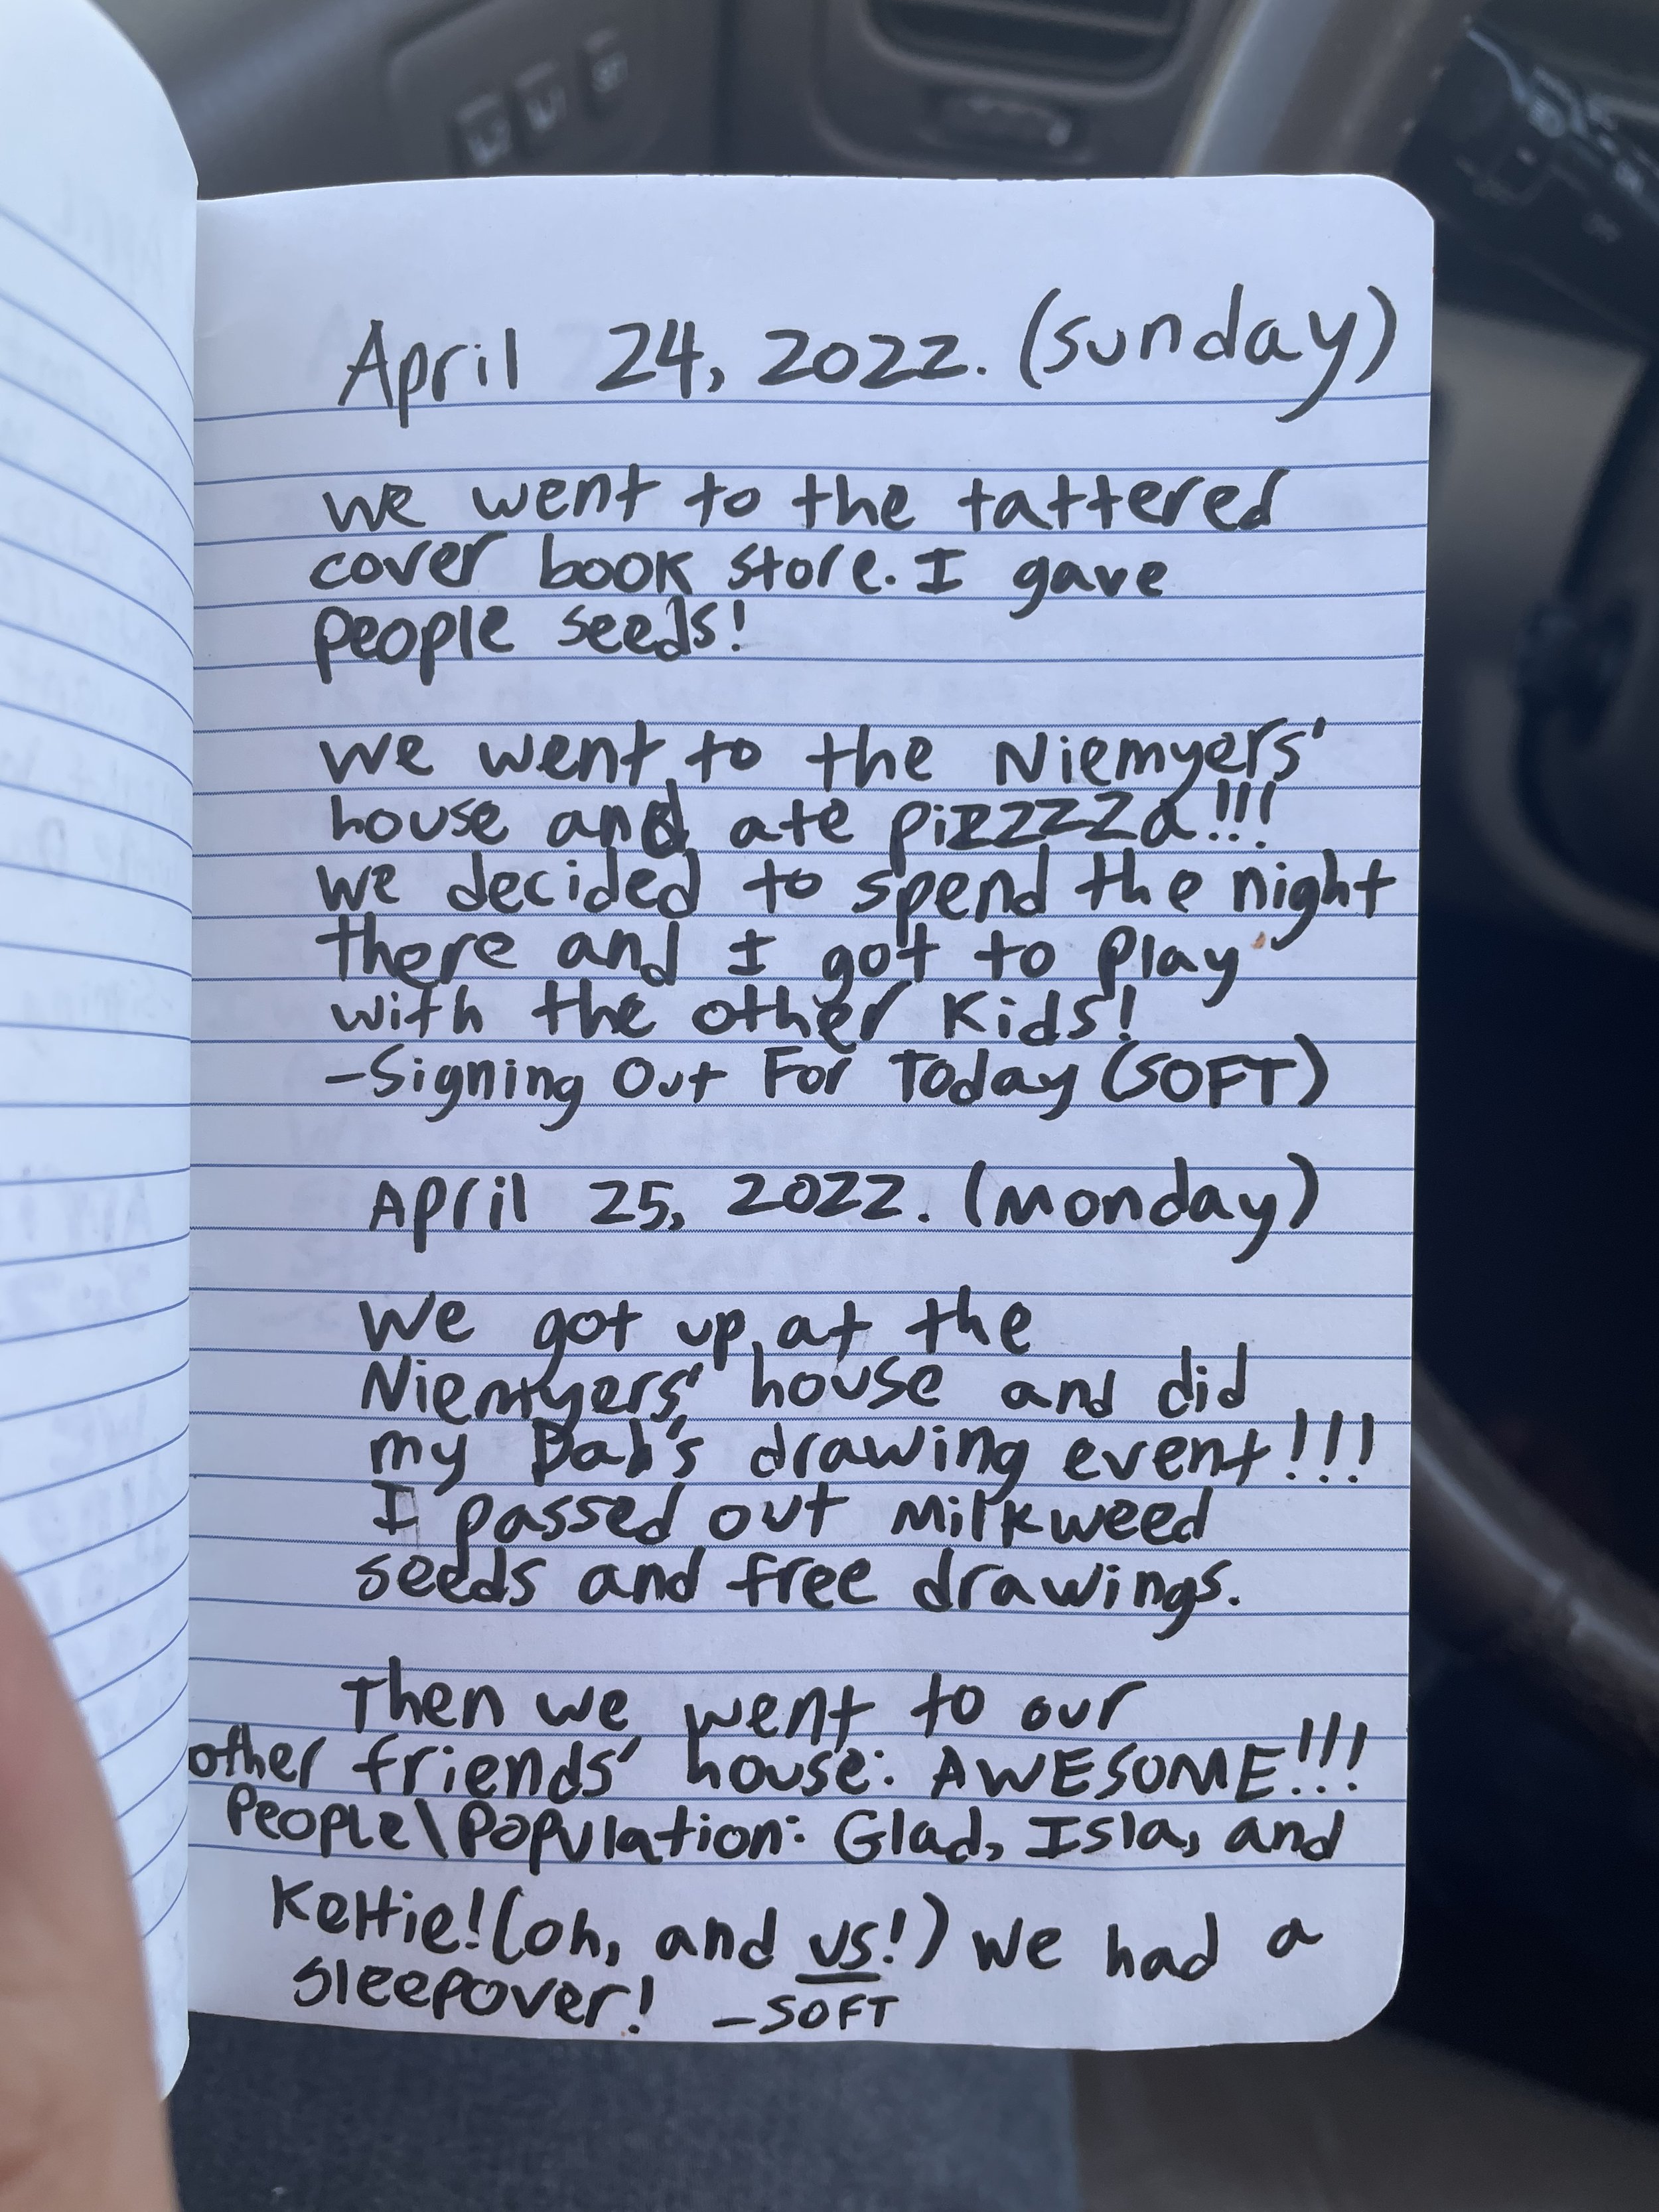 April 24, 2022. (sunday)
we went to the tattered
cover book store. I gave
people seeds!
we went to the Niemyers'
house and ate pizzzza!!!
we decided to spend the night
there and I got to play
with the other kids!
-Signing Out For Today (SOFT)
April 25, 2022. (Monday)
We got up at the
Niemyers' house and did
my Dad's drawing event!!!
I passed out milkweed
seeds and free drawings.
Then we went to our
other friends' house: AWESOME!!!
People\Population: Glad, Isla, and
Kettie! (oh, and us!) we had a
sleepover! -SOFT